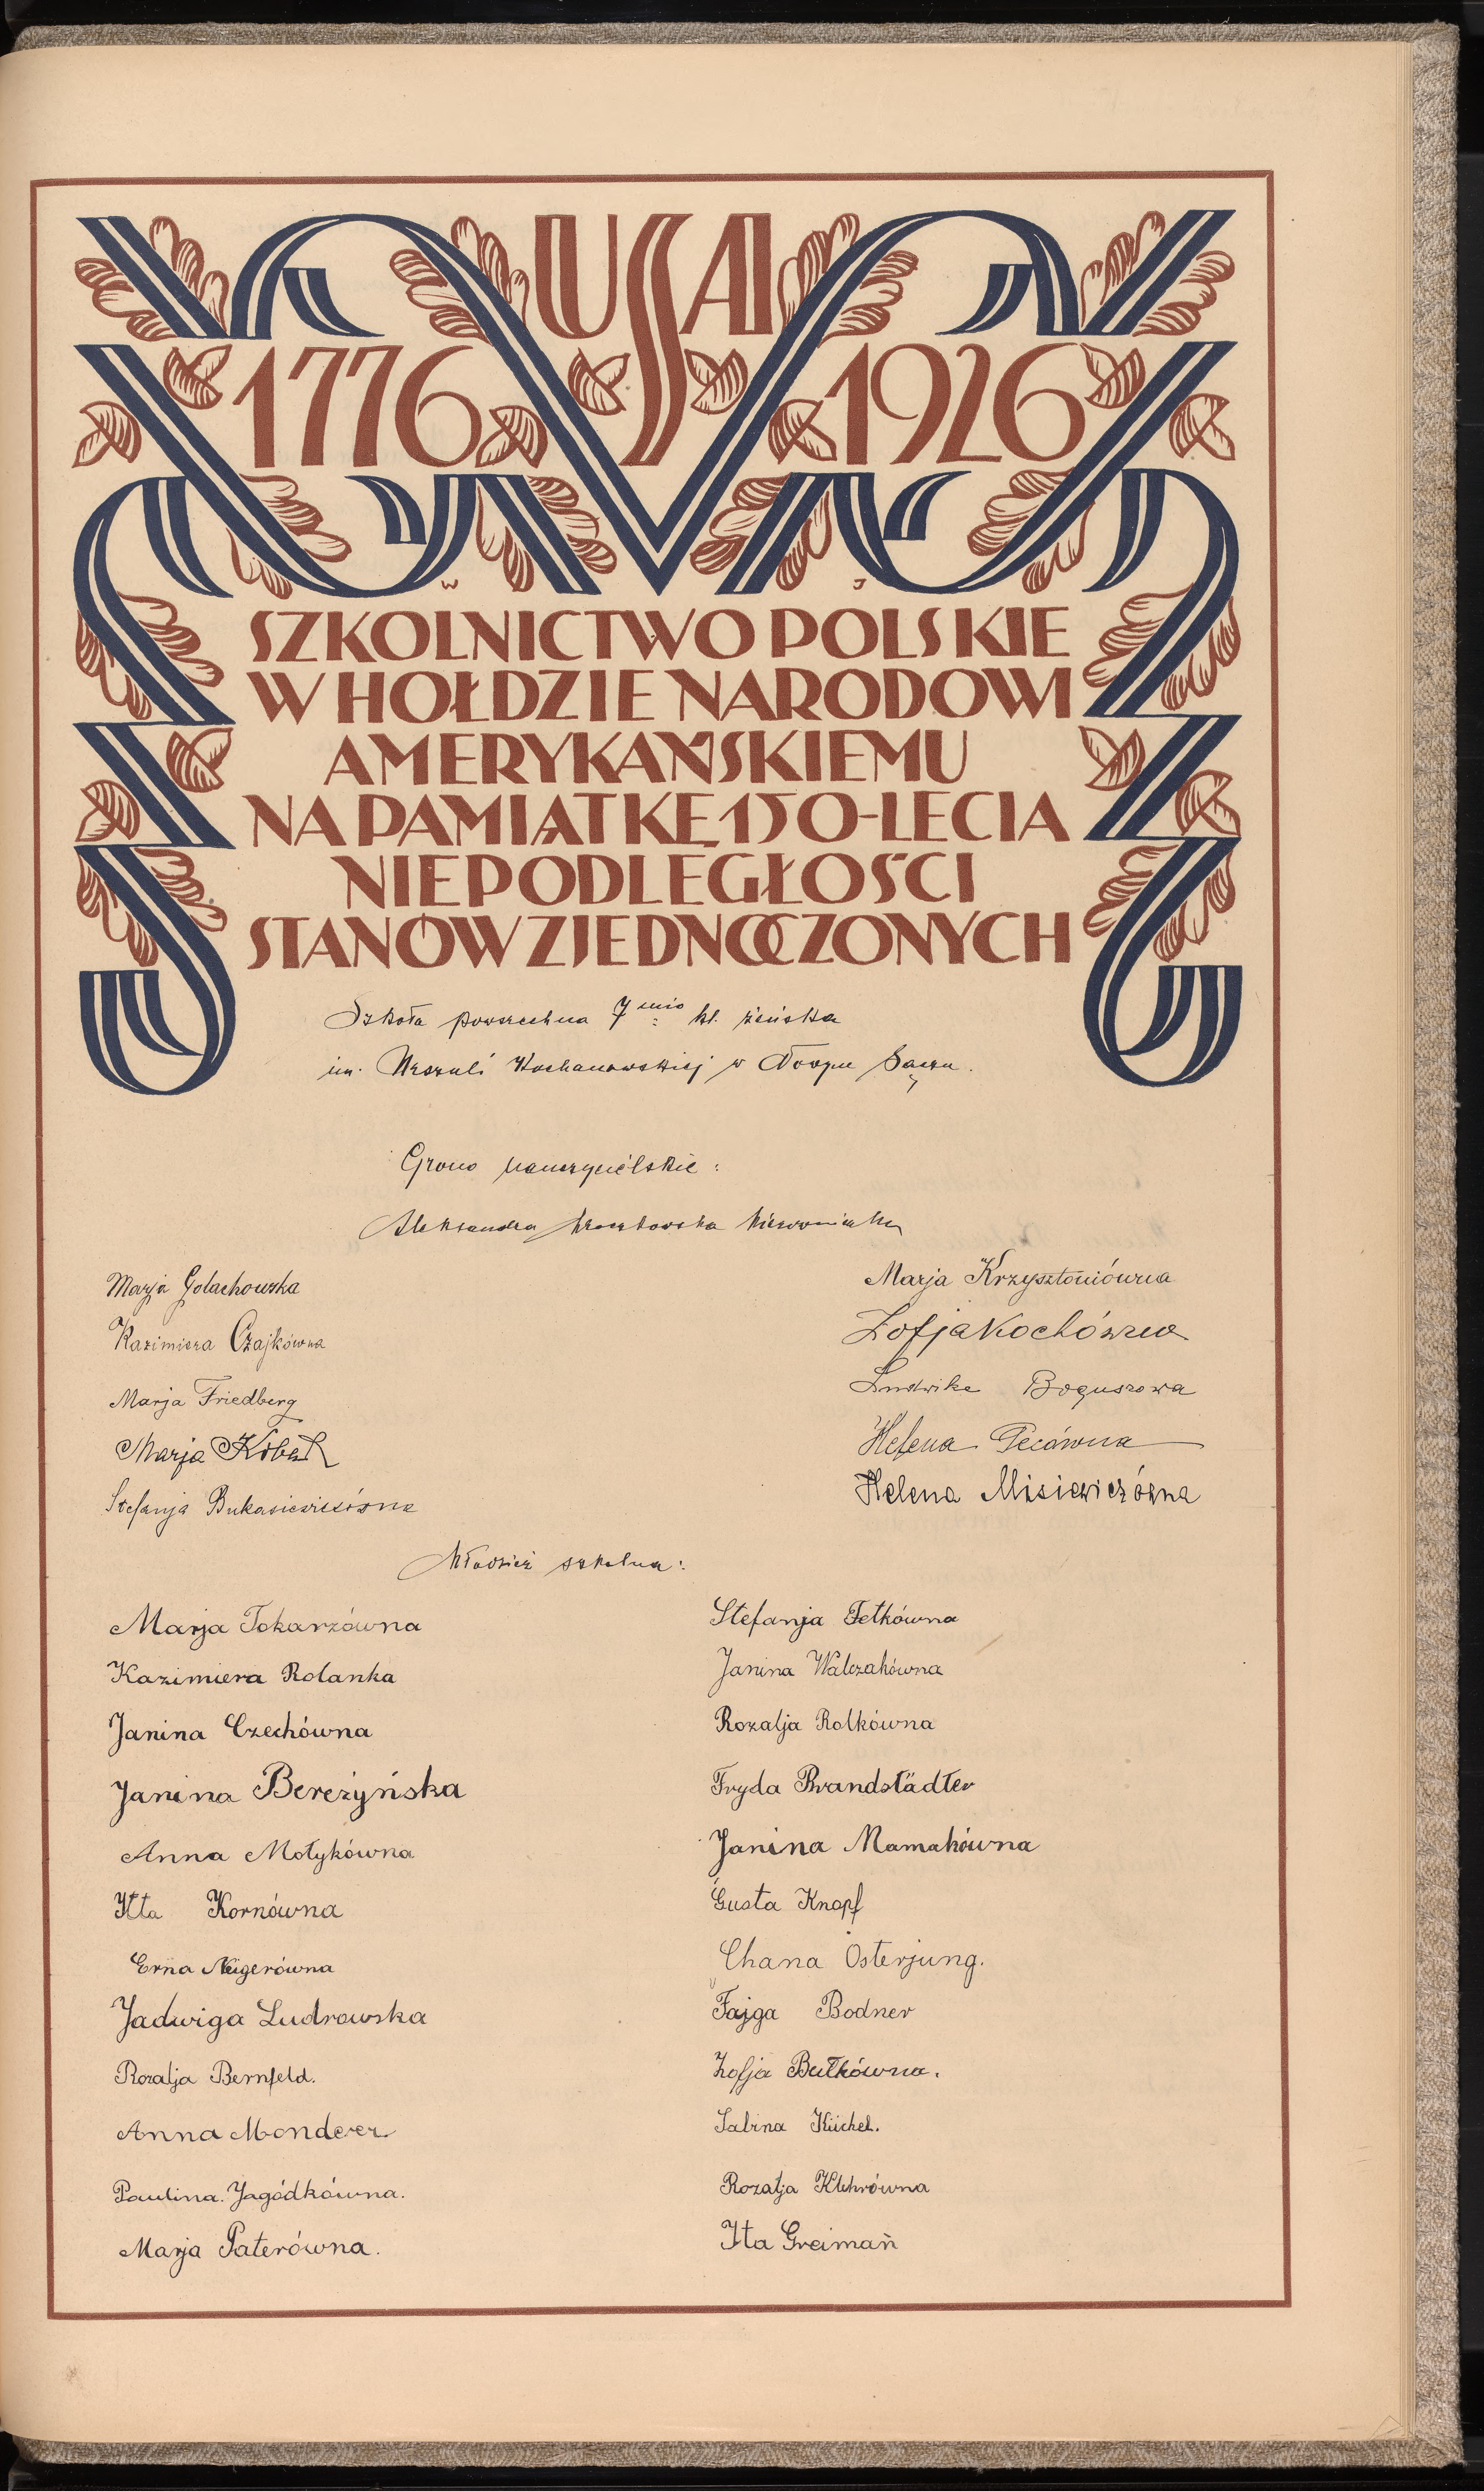 USA
1776 1926
W J
SZKOLNICTWO POLSKIE
W HOŁDZIE NARODOWI
AMERYKAŃSKIEMU
NA PAMIĄTKĘ 150-LECIA
NIEPODLEGŁOŚCI
STANÓW ZJEDNOCZONYCH
Szkoła powszechna 7 mio kl. żeńska
im. Urszuli Kochanowskiej w Nowym Sączu.
Grono nauczycielskie:
Aleksandra kierowniczka
Marja Golachowska
Kazimiera Czajkówna
Marja Friedberg
Marja Kobak
Stefanja Bukasiewiczówna
Marja Krzysztoniówna
Zofja Kochówna
Ludwika Boguszowa
Helena Pecówna
Helena Misiewiczówna
Młodzież szkolna:
Marja Tokarzówna
Kazimiera Rolanka
Janina Czechówna
Janina Bereżyńska
Anna Motykówna
Itta Kornówna
Erna Neigerówna
Jadwiga Ludrowska
Rozalja Bernfeld.
Anna Monderer
Paulina. Jagódkówna.
Marja Paterówna.
Stefanja Fetkówna
Janina Walczakówna
Rozalja Rolkówna
Fryda Brandstädter
Janina Mamakówna
Gusta Knopf
Chana Osterjung.
Fajga Bodner
Zofja Butkówna.
Sabina Küchel.
Rozalja Klehrówna
Ita Greimań